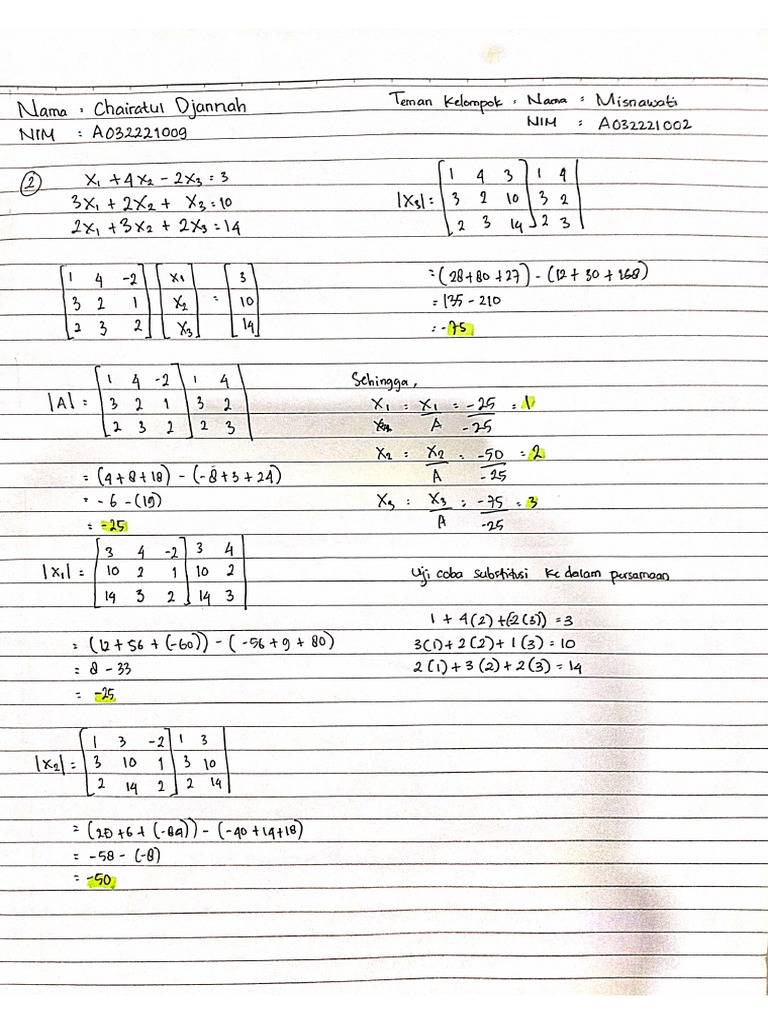 Nama : Chairatul Djannah
NIM : A032221009
Teman Kelompok : Nama : Misnawati
NIM : A032221002
② x₁ + 4x₂ - 2x₃ = 3
3x₁ + 2x₂ + x₃ = 10
2x₁ + 3x₂ + 2x₃ = 14
[1 4 -2] [x₁] [3]
[3 2 1] [x₂] = [10]
[2 3 2] [x₃] [14]
|A| = [1 4 -2] 1 4|
[3 2 1] 3 2|
[2 3 2] 2 3|
= (4+8+18) - (-8+3+24)
= -6 - (19)
= -25
|x₁| = [3 4 -2] 3 4|
[10 2 1] 10 2|
[14 3 2] 14 3|
= (12 + 56 + (-60)) - (-56 + 9 + 80)
= 8 - 33
= -25
|x₂| = [1 3 -2] 1 3|
[3 10 1] 3 10|
[2 14 2] 2 14|
= (20+6+(-84)) - (-40+14+18)
= -58 - (-8)
= -50
|x₃| = [1 4 3] 1 4|
[3 2 10] 3 2|
[2 3 14] 2 3|
= (28+80+27) - (12+30+168)
= 135 - 210
= -75
Sehingga,
x₁ = x₁/A = -25/-25 = 1
x₂ = x₂/A = -50/-25 = 2
x₃ = x₃/A = -75/-25 = 3
Uji coba substitusi ke dalam persamaan
1 + 4(2) + (-2(3)) = 3
3(1) + 2(2) + 1(3) = 10
2(1) + 3(2) + 2(3) = 14